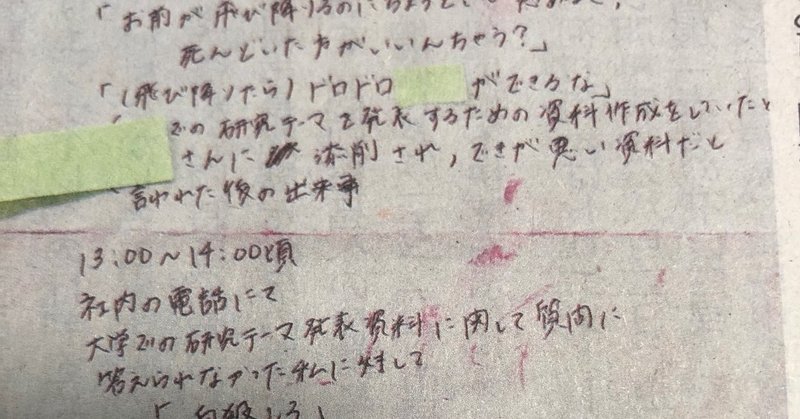 「お前が飛び降りるのにちょうどいい
死んどいた方がいいんちゃう？」
「(飛び降りたら)ドロドロ ができるな」
での研究テーマを発表するための資料作成をしていたと
さんに 添削され、できが悪い資料だと
言われた後の出来事
13:00〜14:00頃
社内の電話にて
大学での研究テーマ発表資料に関して質問に
答えられなかった私に対して
「自殺しろ」